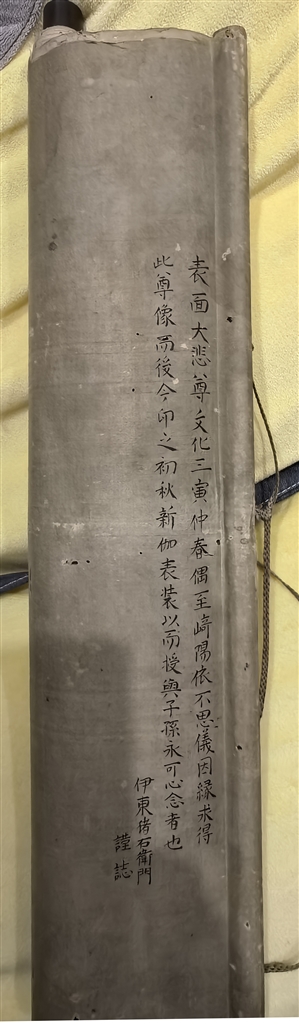 表面大悲尊文化三寅仲春偶至崎陽依不思儀因緣求得
此尊像而後今卯之初秋新伽表装以而授與子孫永可心念者也
伊東猪右衛門
謹誌